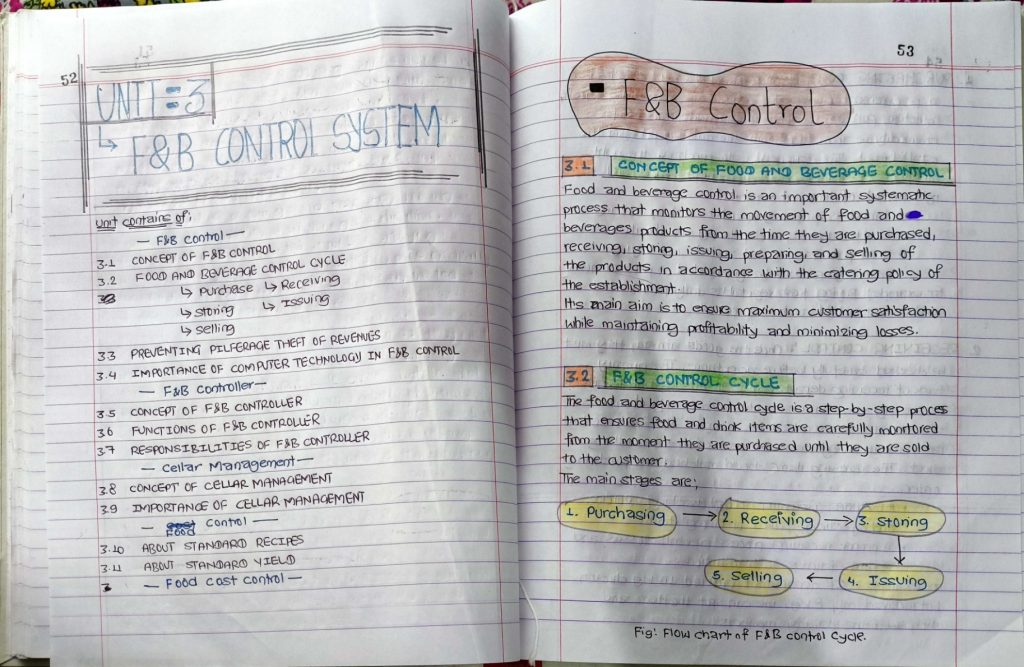 52
UNIT = 3
↳ F&B CONTROL SYSTEM
Unit contains of;
— F&B control —
3.1 CONCEPT OF F&B CONTROL
3.2 FOOD AND BEVERAGE CONTROL CYCLE
↳ Purchase ↳ Receiving
↳ Storing ↳ Issuing
↳ Selling
3.3 PREVENTING PILFERAGE THEFT OF REVENUES
3.4 IMPORTANCE OF COMPUTER TECHNOLOGY IN F&B CONTROL
— F&B Controller —
3.5 CONCEPT OF F&B CONTROLLER
3.6 FUNCTIONS OF F&B CONTROLLER
3.7 RESPONSIBILITIES OF F&B CONTROLLER
— Cellar Management —
3.8 CONCEPT OF CELLAR MANAGEMENT
3.9 IMPORTANCE OF CELLAR MANAGEMENT
— Food Control —
3.10 ABOUT STANDARD RECIPES
3.11 ABOUT STANDARD YIELD
— Food cost control —
53
F&B Control
3.1 CONCEPT OF FOOD AND BEVERAGE CONTROL
Food and beverage control is an important systematic
process that monitors the movement of food and
beverages products from the time they are purchased,
receiving, storing, issuing, preparing, and selling of
the products in accordance with the catering policy of
the establishment.
Its main aim is to ensure maximum customer satisfaction
while maintaining profitability and minimizing losses.
3.2 F&B CONTROL CYCLE
The food and beverage control cycle is a step-by-step process
that ensures food and drink items are carefully monitored
from the moment they are purchased until they are sold
to the customer.
The main stages are;
1. Purchasing → 2. Receiving → 3. Storing
↓
5. Selling ← 4. Issuing
Fig: Flow chart of F&B control Cycle.